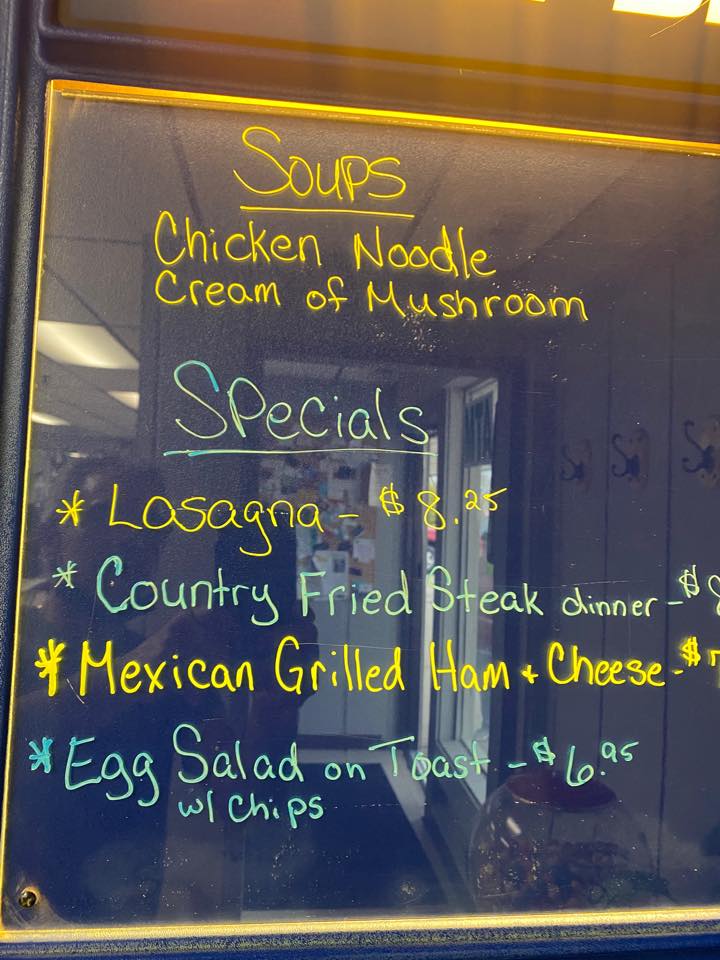 Soups
Chicken Noodle
Cream of Mushroom
Specials
* Lasagna - $8.25
* Country Fried Steak dinner - $
* Mexican Grilled Ham + Cheese - $
* Egg Salad on Toast - $6.95
w/ Chips